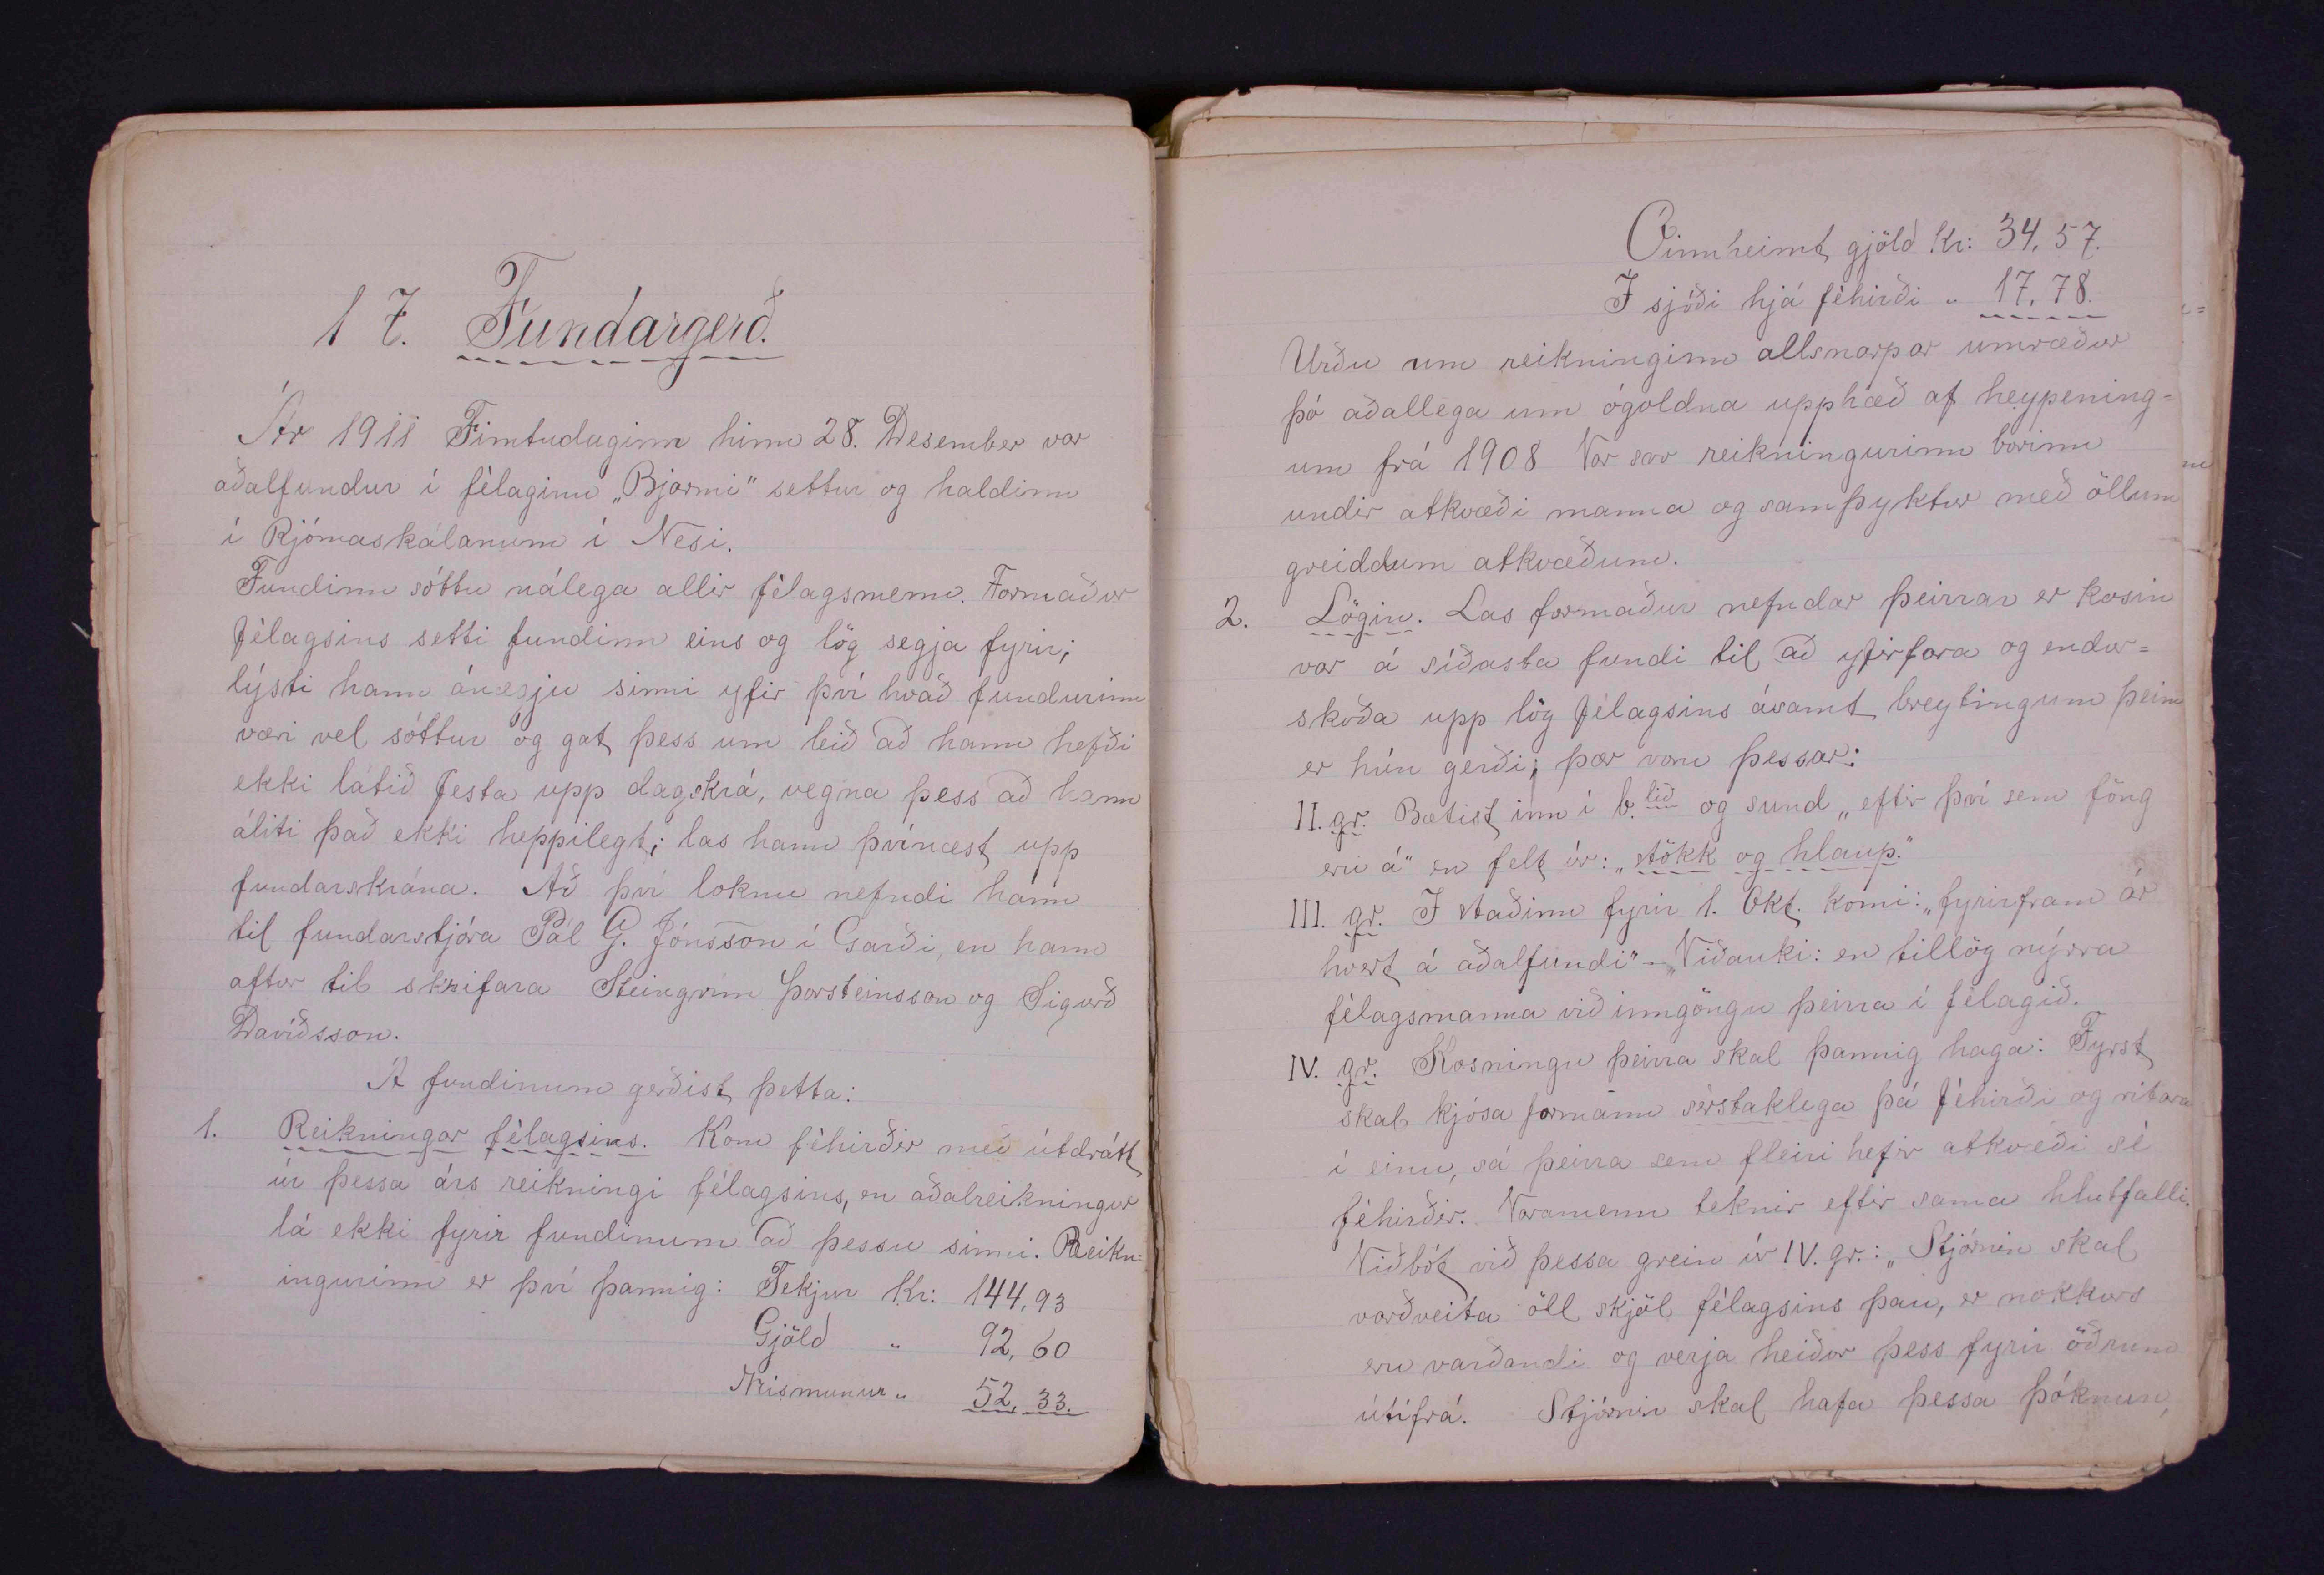 17. Fundargerð.
Ár 1911 Fimtudaginn hinn 28. Desember var
aðalfundur í félaginu „Bjarmi" settur og haldinn
í Rjómaskálanum í Nesi.
Fundinn sóttu nálega allir félagsmenn. Formaður
félagsins setti fundinn eins og lög segja fyrir;
lýsti hann ánægju sinni yfir því hvað fundurinn
væri vel sóttur og gat þess um leið að hann hefði
ekki látið festa upp dagskrá, vegna þess að hann
áliti það ekki heppilegt; las hann þvínæst upp
fundarskrána. Að því loknu nefndi hann
til fundarstjóra Pál G. Jónsson í Garði, en hann
aftur til skrifara Steingrím Þorsteinsson og Sigurð
Davíðsson.
Á fundinum gerðist þetta:
1. Reikningar félagsins. Kom féhirðir með útdrátt
úr þessa árs reikningi félagsins, en aðalreikningur
lá ekki fyrir fundinum að þessu sinni. Reikn=
ingurinn er því þannig: Tekjur Kr: 144,93
Gjöld " 92,60
Mismunur " 52,33.
Óinnheimt gjöld Kr: 34,57.
Í sjóði hjá féhirði " 17,78.
Urðu um reikninginn allsnarpar umræður
þó aðallega um ógoldna upphæð af heypening=
um frá 1908 Var svo reikningurinn borinn
undir atkvæði manna og samþyktur með öllum
greiddum atkvæðum.
2. Lögin. Las formaður nefndar þeirrar er kosin
var á síðasta fundi til að yfirfara og endur=
skoða upp lög félagsins ásamt breytingum þeim
er hún gerði; þær voru þessar:
II. gr. Bætist inn í b. lið og sund „eftir því sem föng
eru á" en felt úr: „stökk og hlaup."
III. gr. Í staðinn fyrir 1. Okt. komi: „fyrirfram ár
hvert á aðalfundi" – „Viðauki: en tillög nýrra
félagsmanna við inngöngu þeirra í félagið.
IV. gr. Kosningu þeirra skal þannig haga: Fyrst
skal kjósa formann sérstaklega þá féhirði og ritara
í einu, sá þeirra sem fleiri hefir atkvæði sé
féhirðir. Varamenn teknir eftir sama hlutfalli.
Viðbót við þessa grein úr IV. gr.: „Stjórnin skal
varðveita öll skjöl félagsins þau, er nokkurs
eru varðandi og verja heiður þess fyrir öðrum
útífrá. Stjórnin skal hafa þessa þóknun,